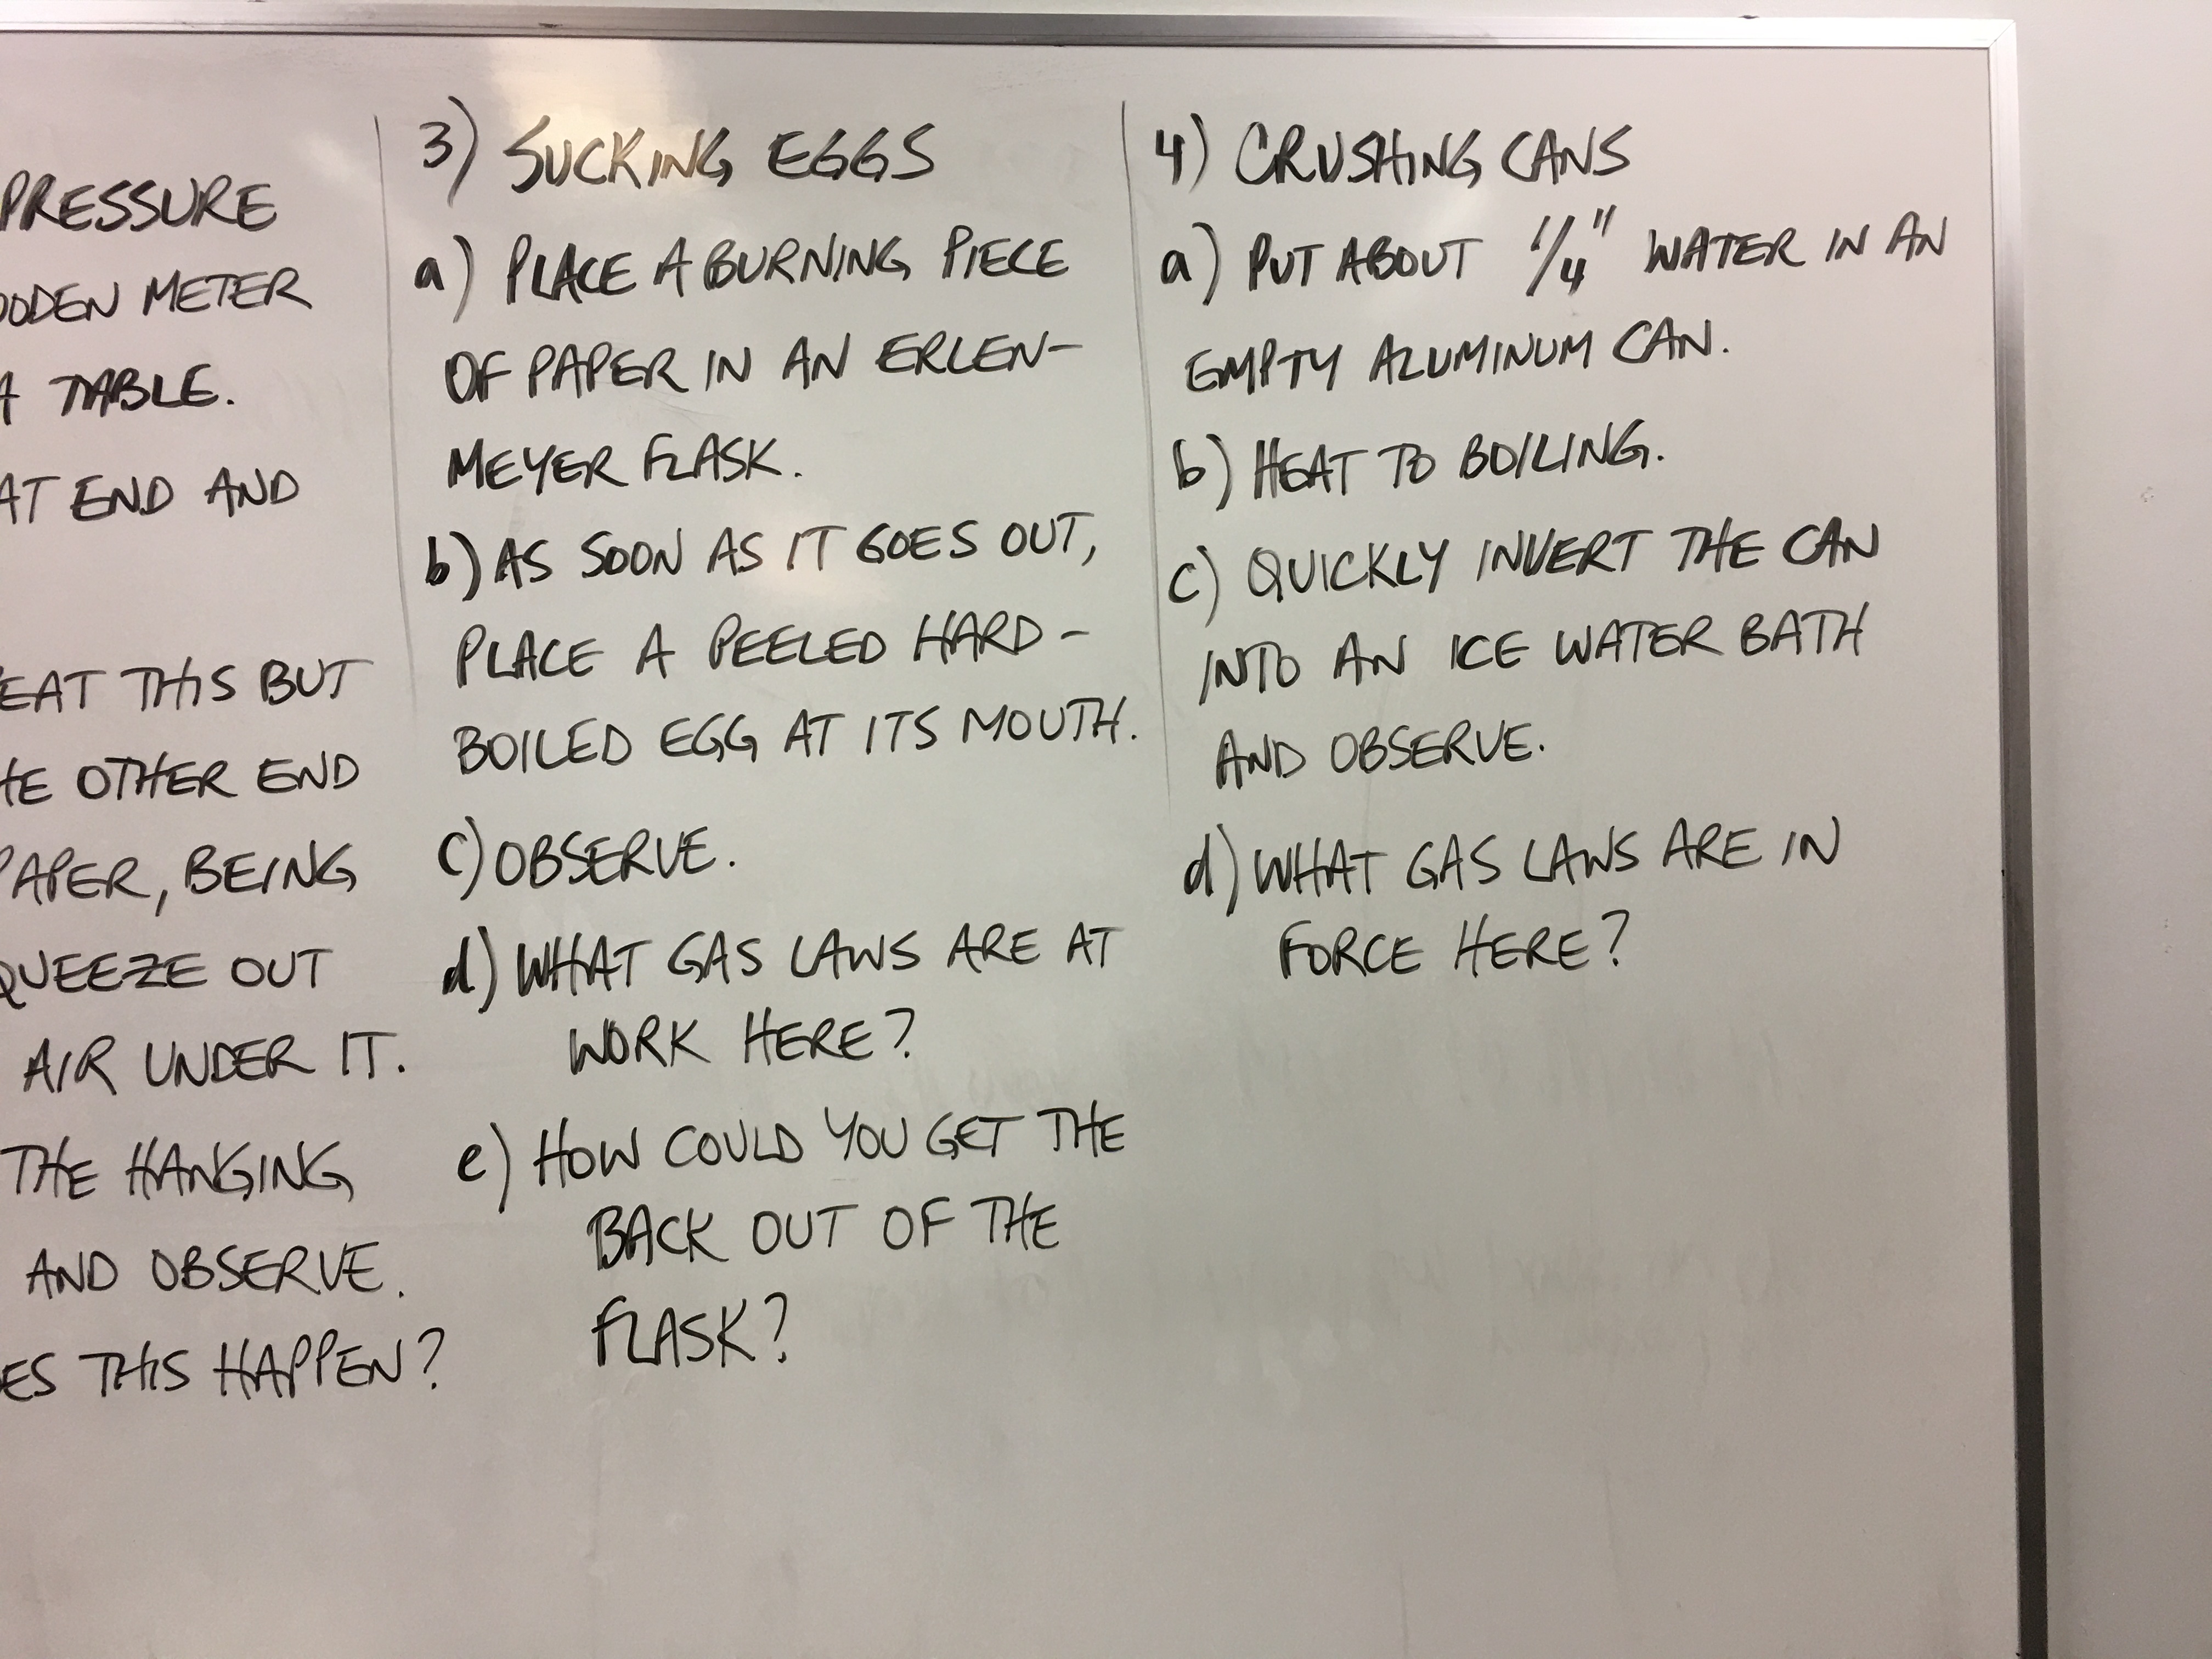 PRESSURE
METER
TABLE.
AT END AND
THIS BUT
OTHER END
PAPER, BEING
OUT
AIR UNDER IT.
THE HANGING
AND OBSERVE.
THIS HAPPEN?
3) SUCKING EGGS
a) PLACE A BURNING PIECE
OF PAPER IN AN ERLEN-
MEYER FLASK.
b) AS SOON AS IT GOES OUT,
PLACE A PEELED HARD-
BOILED EGG AT ITS MOUTH.
c) OBSERVE.
d) WHAT GAS LAWS ARE AT
WORK HERE?
e) HOW COULD YOU GET THE
BACK OUT OF THE
FLASK?
4) CRUSHING CANS
a) PUT ABOUT 1/4" WATER IN AN
EMPTY ALUMINUM CAN.
b) HEAT TO BOILING.
c) QUICKLY INVERT THE CAN
INTO AN ICE WATER BATH
AND OBSERVE.
d) WHAT GAS LAWS ARE IN
FORCE HERE?